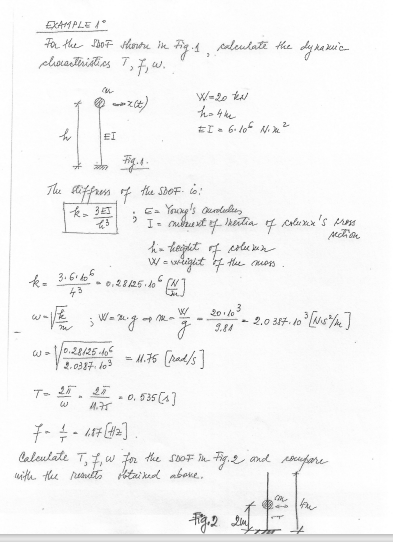 EXAMPLE 1°
For the SDOF shown in Fig.1, calculate the dynamic
characteristics T, f, ω.
m
x(t)
W=20 kN
h=4m
EI = 6·10⁶ N·m²
h
EI
Fig.1.
The stiffness of the SDOF is:
k = 3EI/h³ ; E = Young's modulus
I = moment of inertia of column's cross
section
h = height of column
W = weight of the mass.
k = 3·6·10⁶/4³ = 0.28125·10⁶ [N/m]
ω = √(k/m) ; W = m·g ⇒ m = W/g = 20·10³/9.81 = 2.0387·10³ [N·s²/m]
ω = √(0.28125·10⁶/2.0387·10³) = 11.75 [rad/s]
T = 2π/ω = 2π/11.75 = 0.535 [s]
f = 1/T = 1.87 [Hz].
Calculate T, f, ω for the SDOF in Fig.2 and compare
with the results obtained above.
m
4m
Fig.2
2m